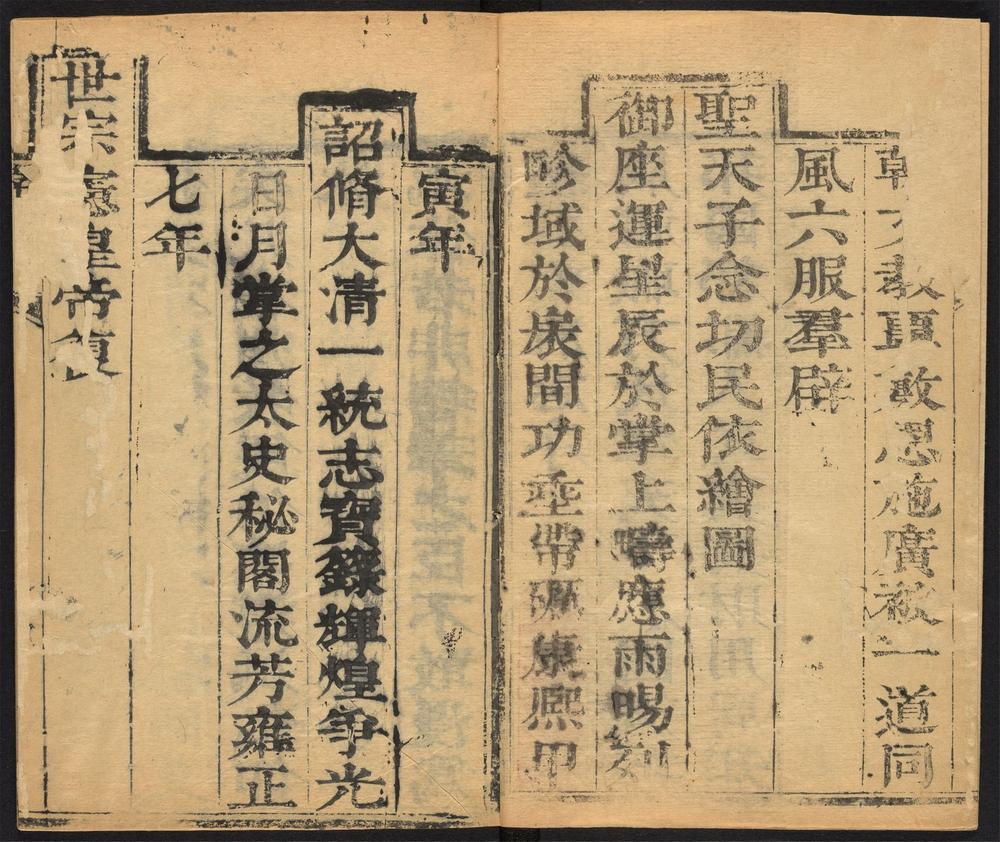 教 敷恩施廣被一道同
風六服羣辟
聖天子念切民依繪圖
御座運星辰於掌上疇應雨暘列
畛域於扆間功垂帶礪康熙甲
寅年
詔脩大清一統志寶錄輝煌爭光
日月掌之太史秘閣流芳雍正
七年
世宗憲皇帝復